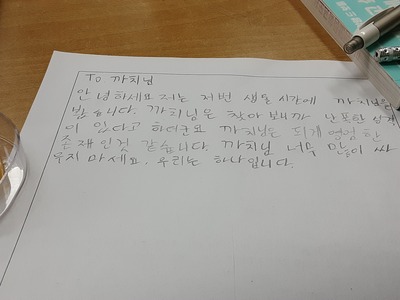 To 까치님
안녕하세요 저는 저번 생물 시간에 까치님을
봤습니다. 까치님은 찾아 보니까 난폭한 성격
이 있다고 하더군요 까치님은 되게 영엄한
존재인것 같습니다. 까치님 너무 많이 싸
우지 마세요. 우리는 하나입니다.